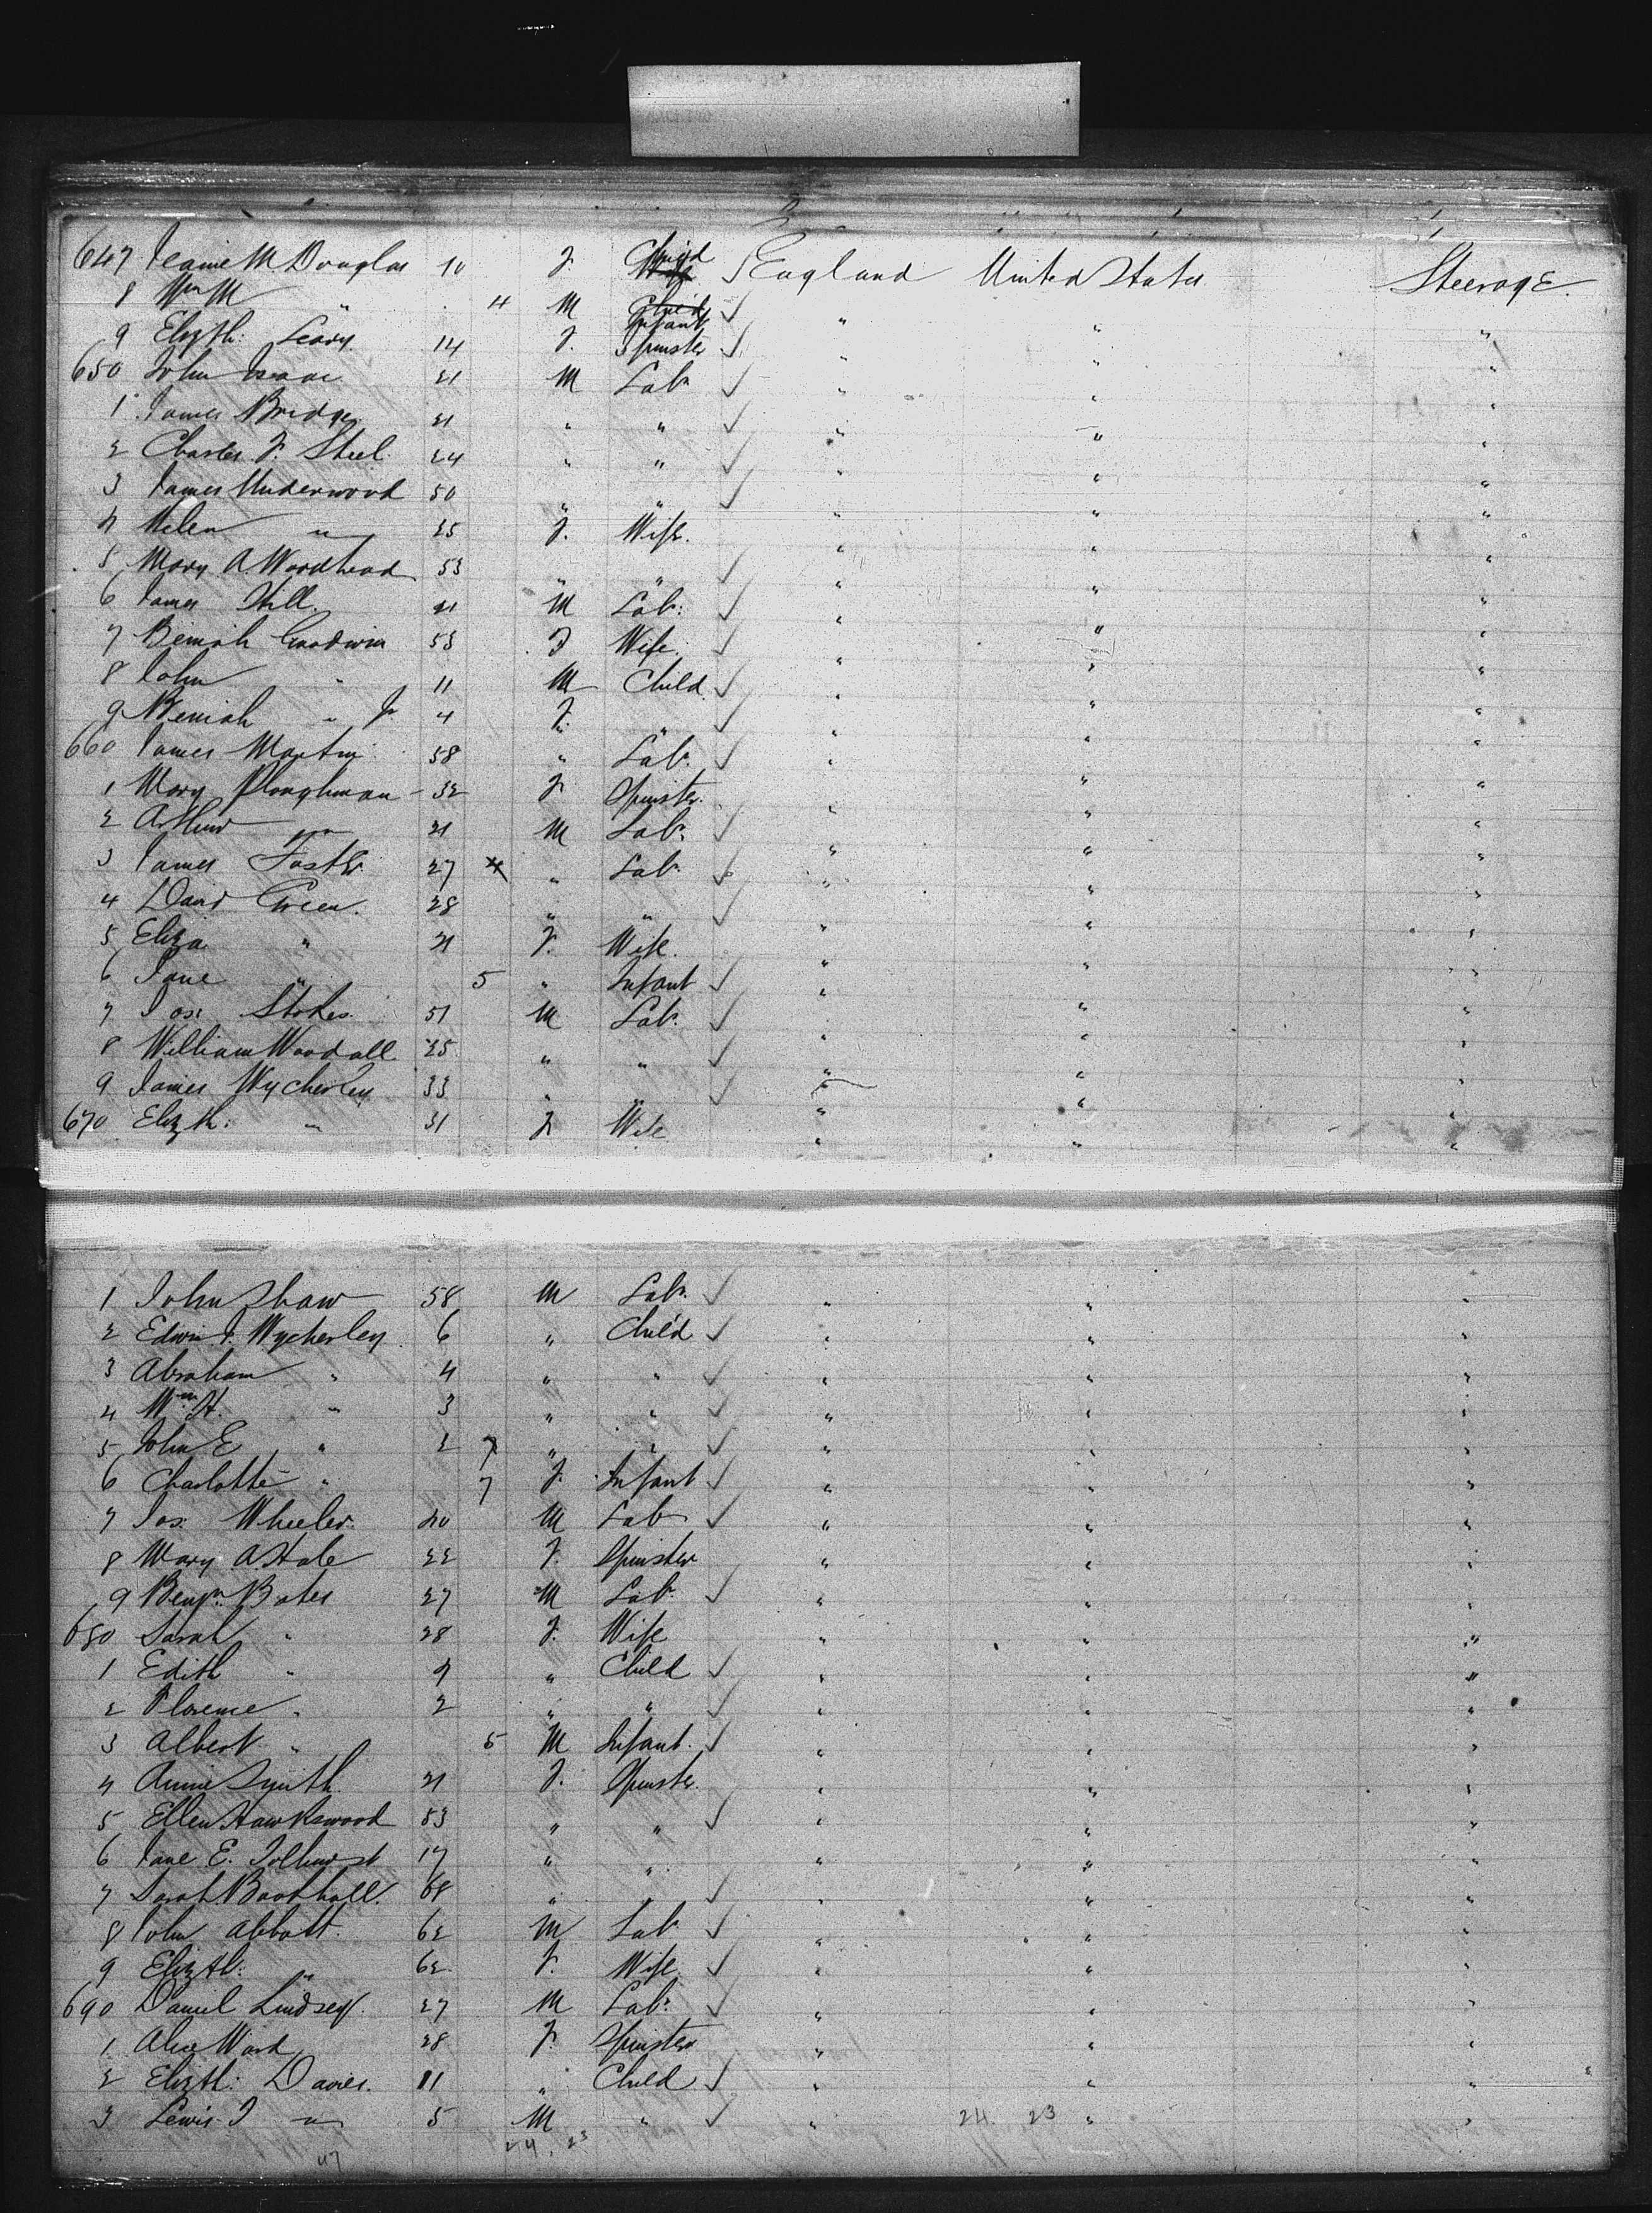 647 Jeanie M Douglas 10 F. Child England United States Steerage.
8 Wm M " 4 M Infant " " "
9 Elizth: Leary 14 F. Spinster " " "
650 John Isaac 21 M Labr " " "
1 James Bridge 21 " " " " "
2 Charles F. Steel 24 " " " " "
3 James Underwood 50 " " " " "
4 Helen " 25 F. Wife. " " "
5 Mary A. Woodhead 53 " " " " "
6 James Hill. 21 M Labr: " " "
7 Beniah Goodwin 53 F Wife. " " "
8 John " 11 M Child " " "
9 Beniah " Jr 4 F. " " " "
660 James Martin 58 " Labr. " " "
1 Mary Ploughman 32 F Spinster. " " "
2 Arthur " 21 M Labr. " " "
3 James Foster 27 " Labr. " " "
4 David Green. 28 " " " " "
5 Eliza " 21 F. Wife. " " "
6 Jane " 5 " Infant " " "
7 Jos: Stokes. 51 M Labr. " " "
8 William Woodall 25 " " " " "
9 James Wycherley 33 " " " " "
670 Elizth: " 31 F Wife " " "
1 John Shaw 58 M Labr. " " "
2 Edwin J. Wycherley 6 " Child " " "
3 Abraham " 4 " " " " "
4 Wm H. " 3 " " " " "
5 John E " 2 " " " " "
6 Charlotte " 7 F. Infant " " "
7 Jos: Wheeler. 20 M Labr " " "
8 Mary A Hale 22 F. Spinster " " "
9 Benjn. Bates 27 M Labr. " " "
680 Sarah " 28 F. Wife " " "
1 Edith " 9 " Child " " "
2 Florence " 2 " " " " "
3 Albert " 5 M Infant. " " "
4 Annie Smith 21 F. Spinster. " " "
5 Ellen Hawkswood 53 " " " " "
6 Jane E. Tolhurst 17 " " " " "
7 Sarah Boothall. 68 " " " " "
8 John Abbott. 62 M Labr " " "
9 Elizth: " 62 F. Wife. " " "
690 Daniel Lindsey. 27 M Labr. " " "
1 Alice Ward 28 F. Spinster " " "
2 Elizth: Davies. 11 " Child " " "
3 Lewis J " 5 M " " 24. 23 " "
24. 23
47